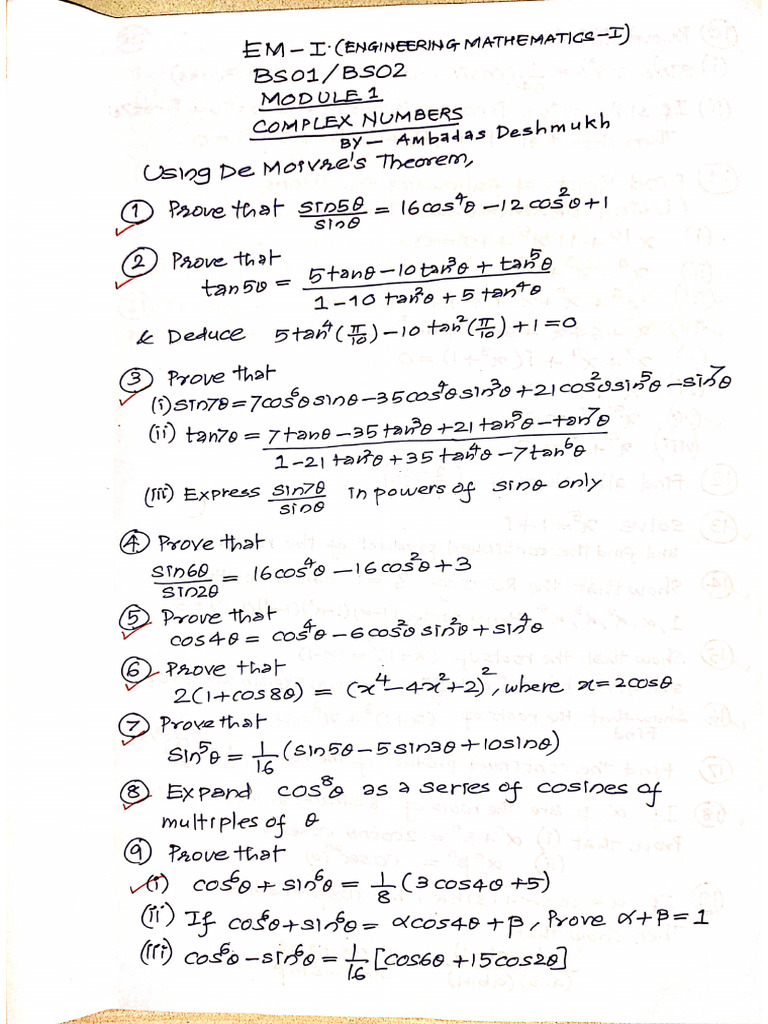 EM-I. (ENGINEERING MATHEMATICS-I)
BS01/BS02
MODULE 1
COMPLEX NUMBERS
BY - Ambadas Deshmukh
Using De Moivre's Theorem,
① Prove that sin5θ/sinθ = 16cos⁴θ - 12cos²θ + 1
② Prove that
tan5θ = (5tanθ - 10tan³θ + tan⁵θ)/(1 - 10tan²θ + 5tan⁴θ)
& Deduce 5tan⁴(π/10) - 10tan²(π/10) + 1 = 0
③ Prove that
(i) sin7θ = 7cos⁶θsinθ - 35cos⁴θsin³θ + 21cos²θsin⁵θ - sin⁷θ
(ii) tan7θ = (7tanθ - 35tan³θ + 21tan⁵θ - tan⁷θ)/(1 - 21tan²θ + 35tan⁴θ - 7tan⁶θ)
(iii) Express sin7θ/sinθ in powers of sinθ only
④ Prove that
sin6θ/sin2θ = 16cos⁴θ - 16cos²θ + 3
⑤ Prove that
cos4θ = cos⁴θ - 6cos²θsin²θ + sin⁴θ
⑥ Prove that
2(1+cos8θ) = (x⁴ - 4x² + 2)², where x = 2cosθ
⑦ Prove that
sin⁵θ = 1/16 (sin5θ - 5sin3θ + 10sinθ)
⑧ Expand cos⁸θ as a series of cosines of
multiples of θ
⑨ Prove that
(i) cos⁶θ + sin⁶θ = 1/8 (3cos4θ + 5)
(ii) If cos⁶θ + sin⁶θ = αcos4θ + β, Prove α + β = 1
(iii) cos⁶θ - sin⁶θ = 1/16 [cos6θ + 15cos2θ]